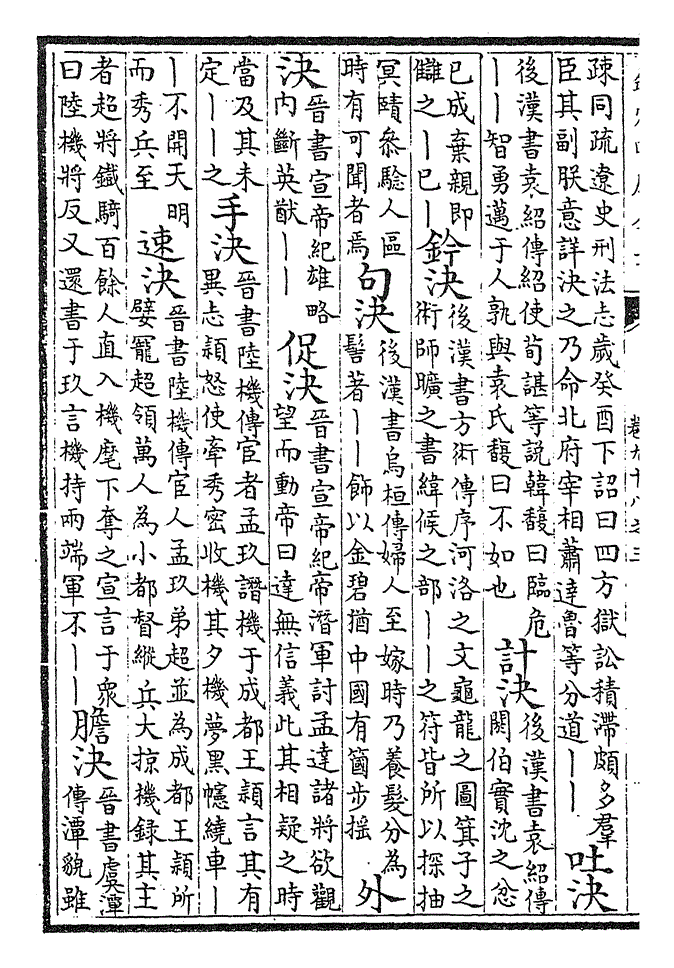 卷九十八之三
疎同疏遼史刑法志歲癸酉下詔曰四方獄訟積滯頗多羣
臣其副朕意詳決之乃命北府宰相蕭達魯等分道丨丨
吐決
後漢書袁紹傳紹使荀諶等說韓馥曰臨危
丨丨智勇邁于人孰與袁氏馥曰不如也
計決
後漢書袁紹傳
閼伯實沈之忿
已成棄親即
讎之丨已丨
鈐決
後漢書方術傳序河洛之文龜龍之圖箕子之
術師曠之書緯候之部丨丨之符皆所以探抽
冥賾參驗人區
時有可聞者焉
句決
後漢書烏桓傳婦人至嫁時乃養髮分為
髻著丨丨飾以金碧猶中國有箇步摇
外
決
晉書宣帝紀雄略
内斷英猷丨丨
促決
晉書宣帝紀帝潛軍討孟達諸將欲觀
望而動帝曰達無信義此其相疑之時
當及其未
定丨丨之
手決
晉書陸機傳宦者孟玖譖機于成都王穎言其有
異志穎怒使牽秀密收機其夕機夢黑幰繞車丨
丨不開天明
而秀兵至
速決
晉書陸機傳宦人孟玖弟超並為成都王穎所
嬖寵超領萬人為小都督縱兵大掠機録其主
者超將鐵騎百餘人直入機麾下奪之宣言于衆
曰陸機將反又還書于玖言機持兩端軍不丨丨
膽決
晉書虞潭
傳潭貌雖